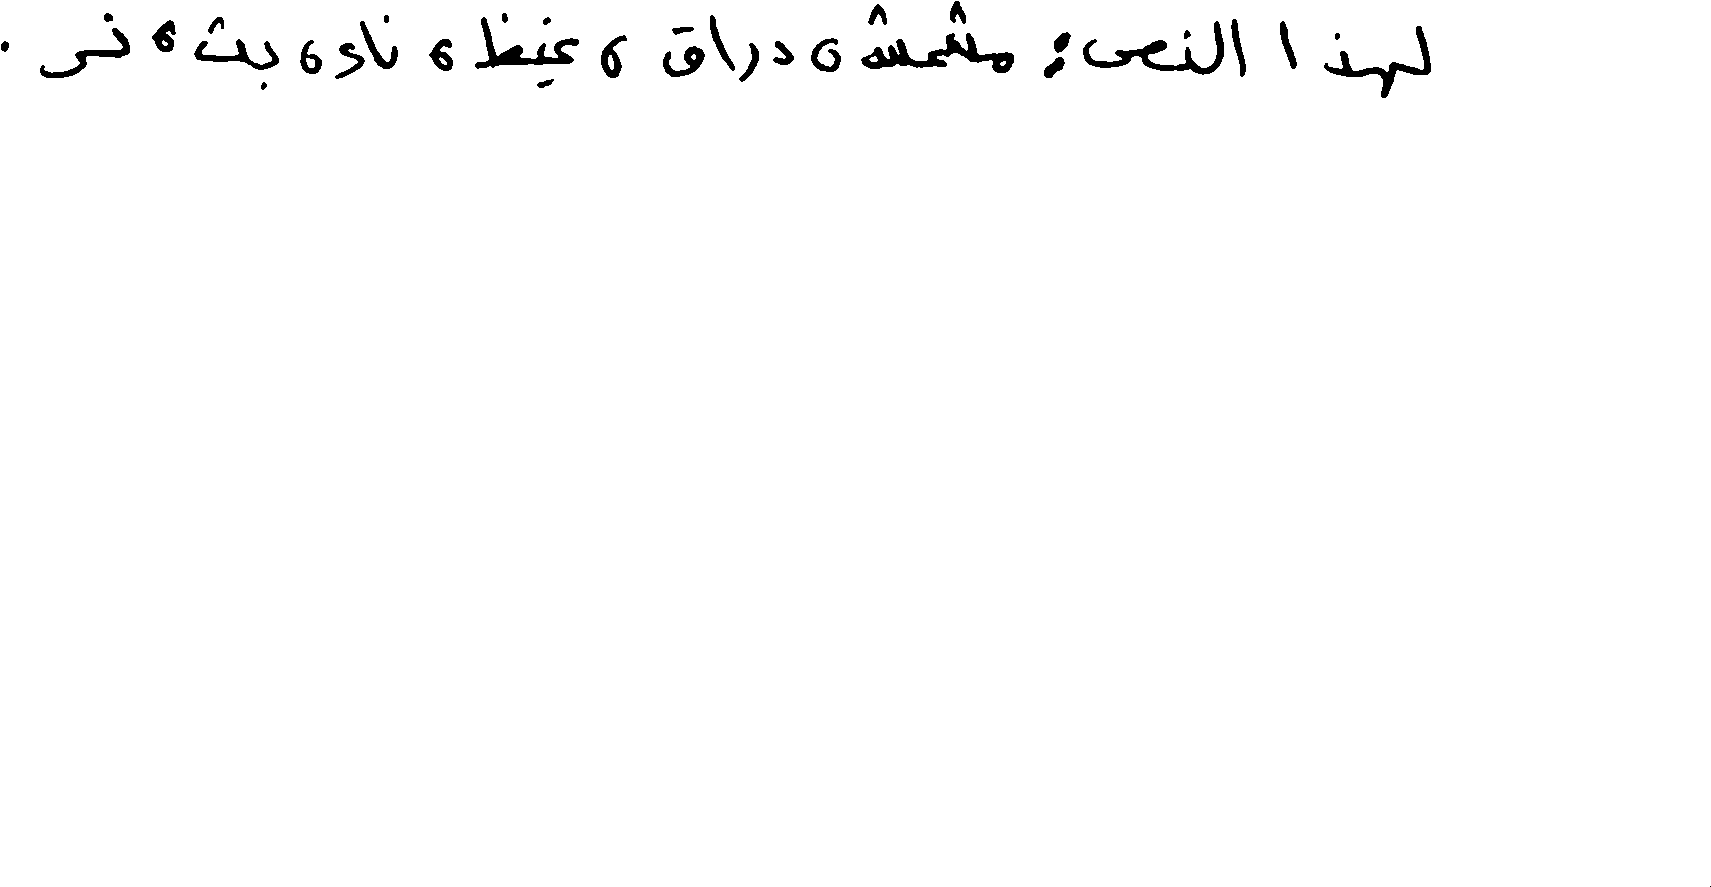 لهذا النص: مشمش، دراق، غيظ، ناء، بث، نس.